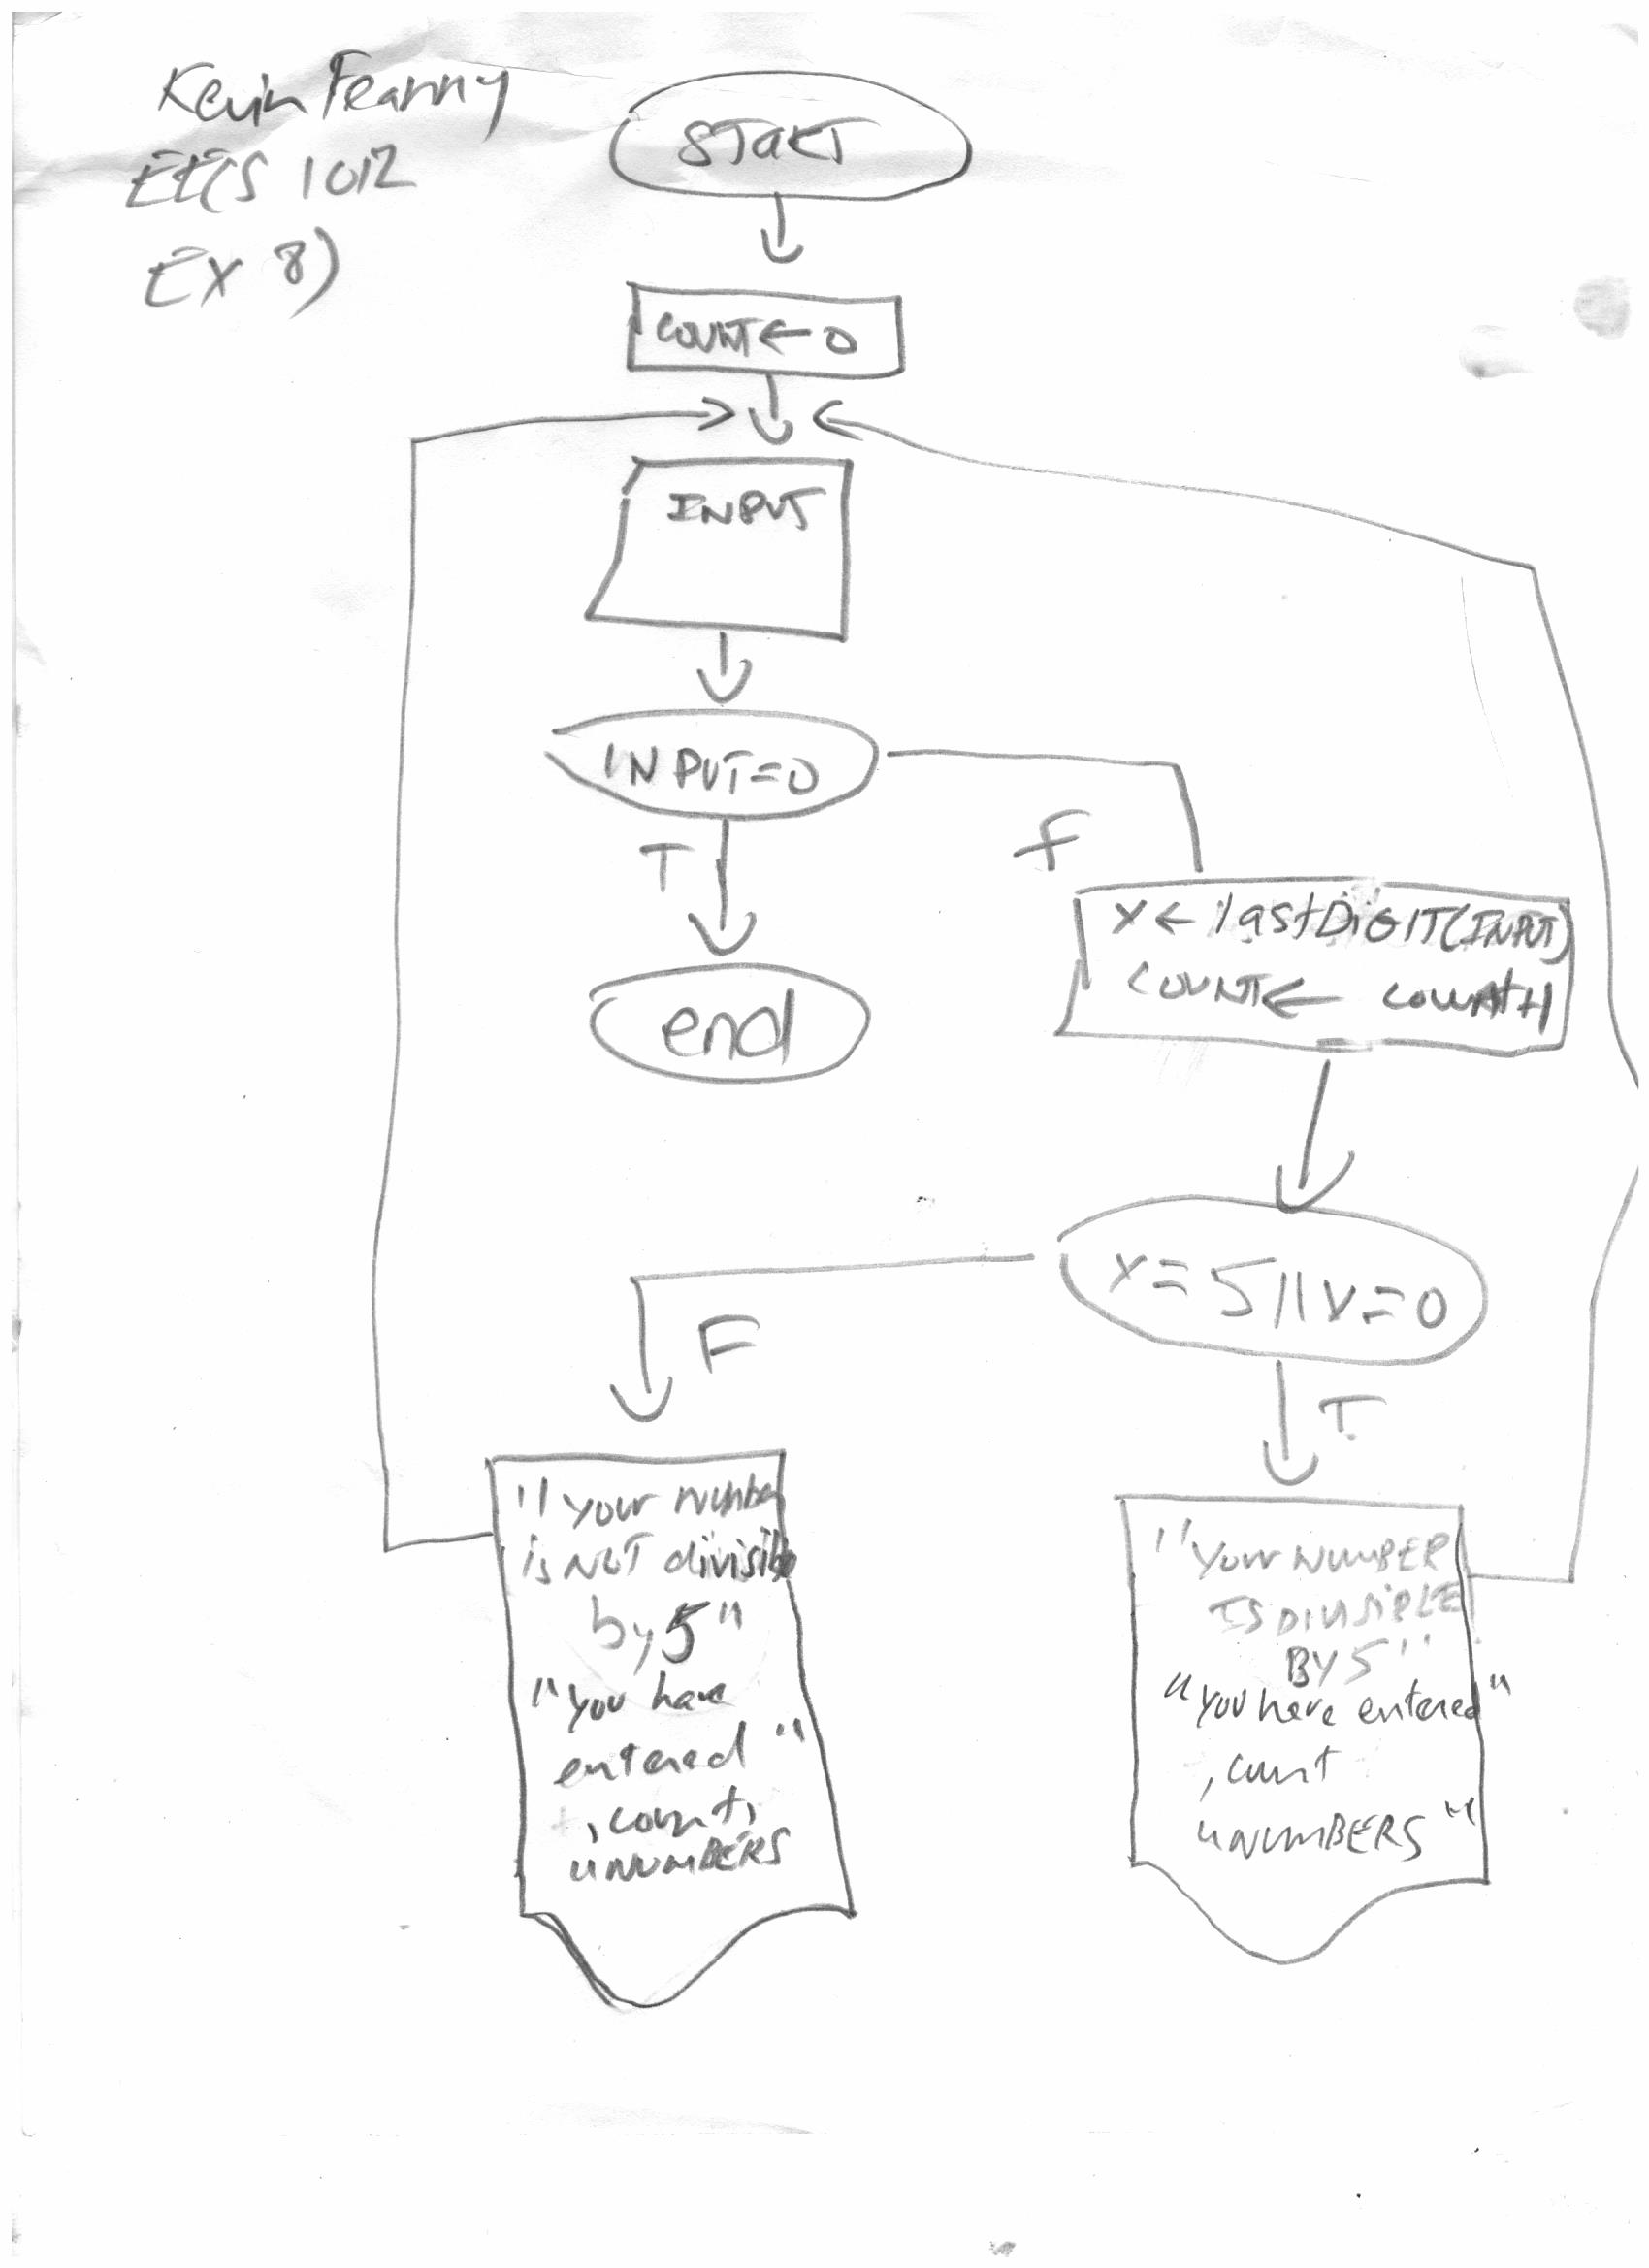 Kevin Feanny
EECS 1012
EX 8)
START
COUNT ← 0
INPUT
INPUT=0
T
F
end
X ← lastDiGIT(INPUT)
COUNT ← COUNT+1
x=5||x=0
F
T
"your number
is NOT divisible
by 5"
"you have
entered"
, count,
"NUMBERS
"YOUR NUMBER
IS DIVISIBLE
BY 5"
"you have entered"
, count
"NUMBERS"